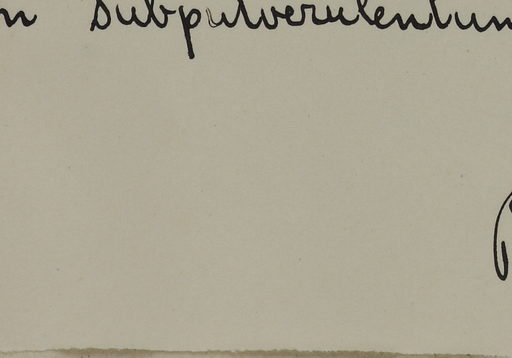 n subpulverulentum